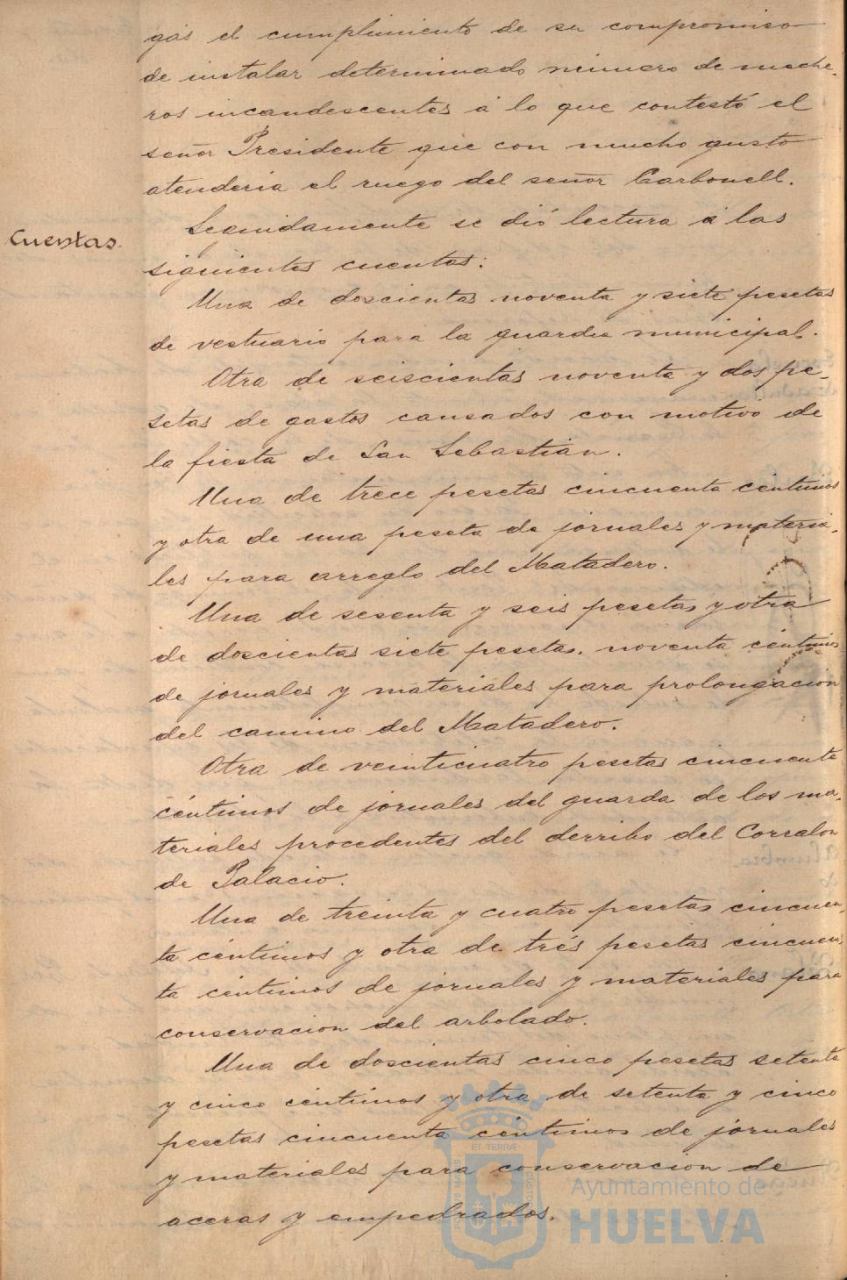 gas el cumplimiento de su compromiso
de instalar determinado número de meche-
ros incandescentes á lo que contestó el
señor Presidente que con mucho gusto
atenderia el ruego del señor Carbonell.
Cuentas.
Seguidamente se dió lectura á las
siguientes cuentas:
Una de doscientas noventa y siete pesetas
de vestuario para la guardia municipal.
Otra de seiscientas noventa y dos pe-
setas de gastos causados con motivo de
la fiesta de San Sebastián.
Una de trece pesetas cincuenta céntimos
y otra de una peseta de jornales y materia-
les para arreglo del Matadero.
Una de sesenta y seis pesetas y otra
de doscientas siete pesetas noventa céntimos
de jornales y materiales para prolongación
del camino del Matadero.
Otra de veinticuatro pesetas cincuenta
céntimos de jornales del guarda de los ma-
teriales procedentes del derribo del Corralon
de Palacio.
Una de treinta y cuatro pesetas cincuen-
ta céntimos y otra de tres pesetas cincuen-
ta céntimos de jornales y materiales para
conservacion del arbolado.
Una de doscientas cinco pesetas setenta
y cinco céntimos y otra de setenta y cinco
pesetas cincuenta céntimos de jornales
y materiales para conservacion de
aceras y empedrados.
Ayuntamiento de
HUELVA